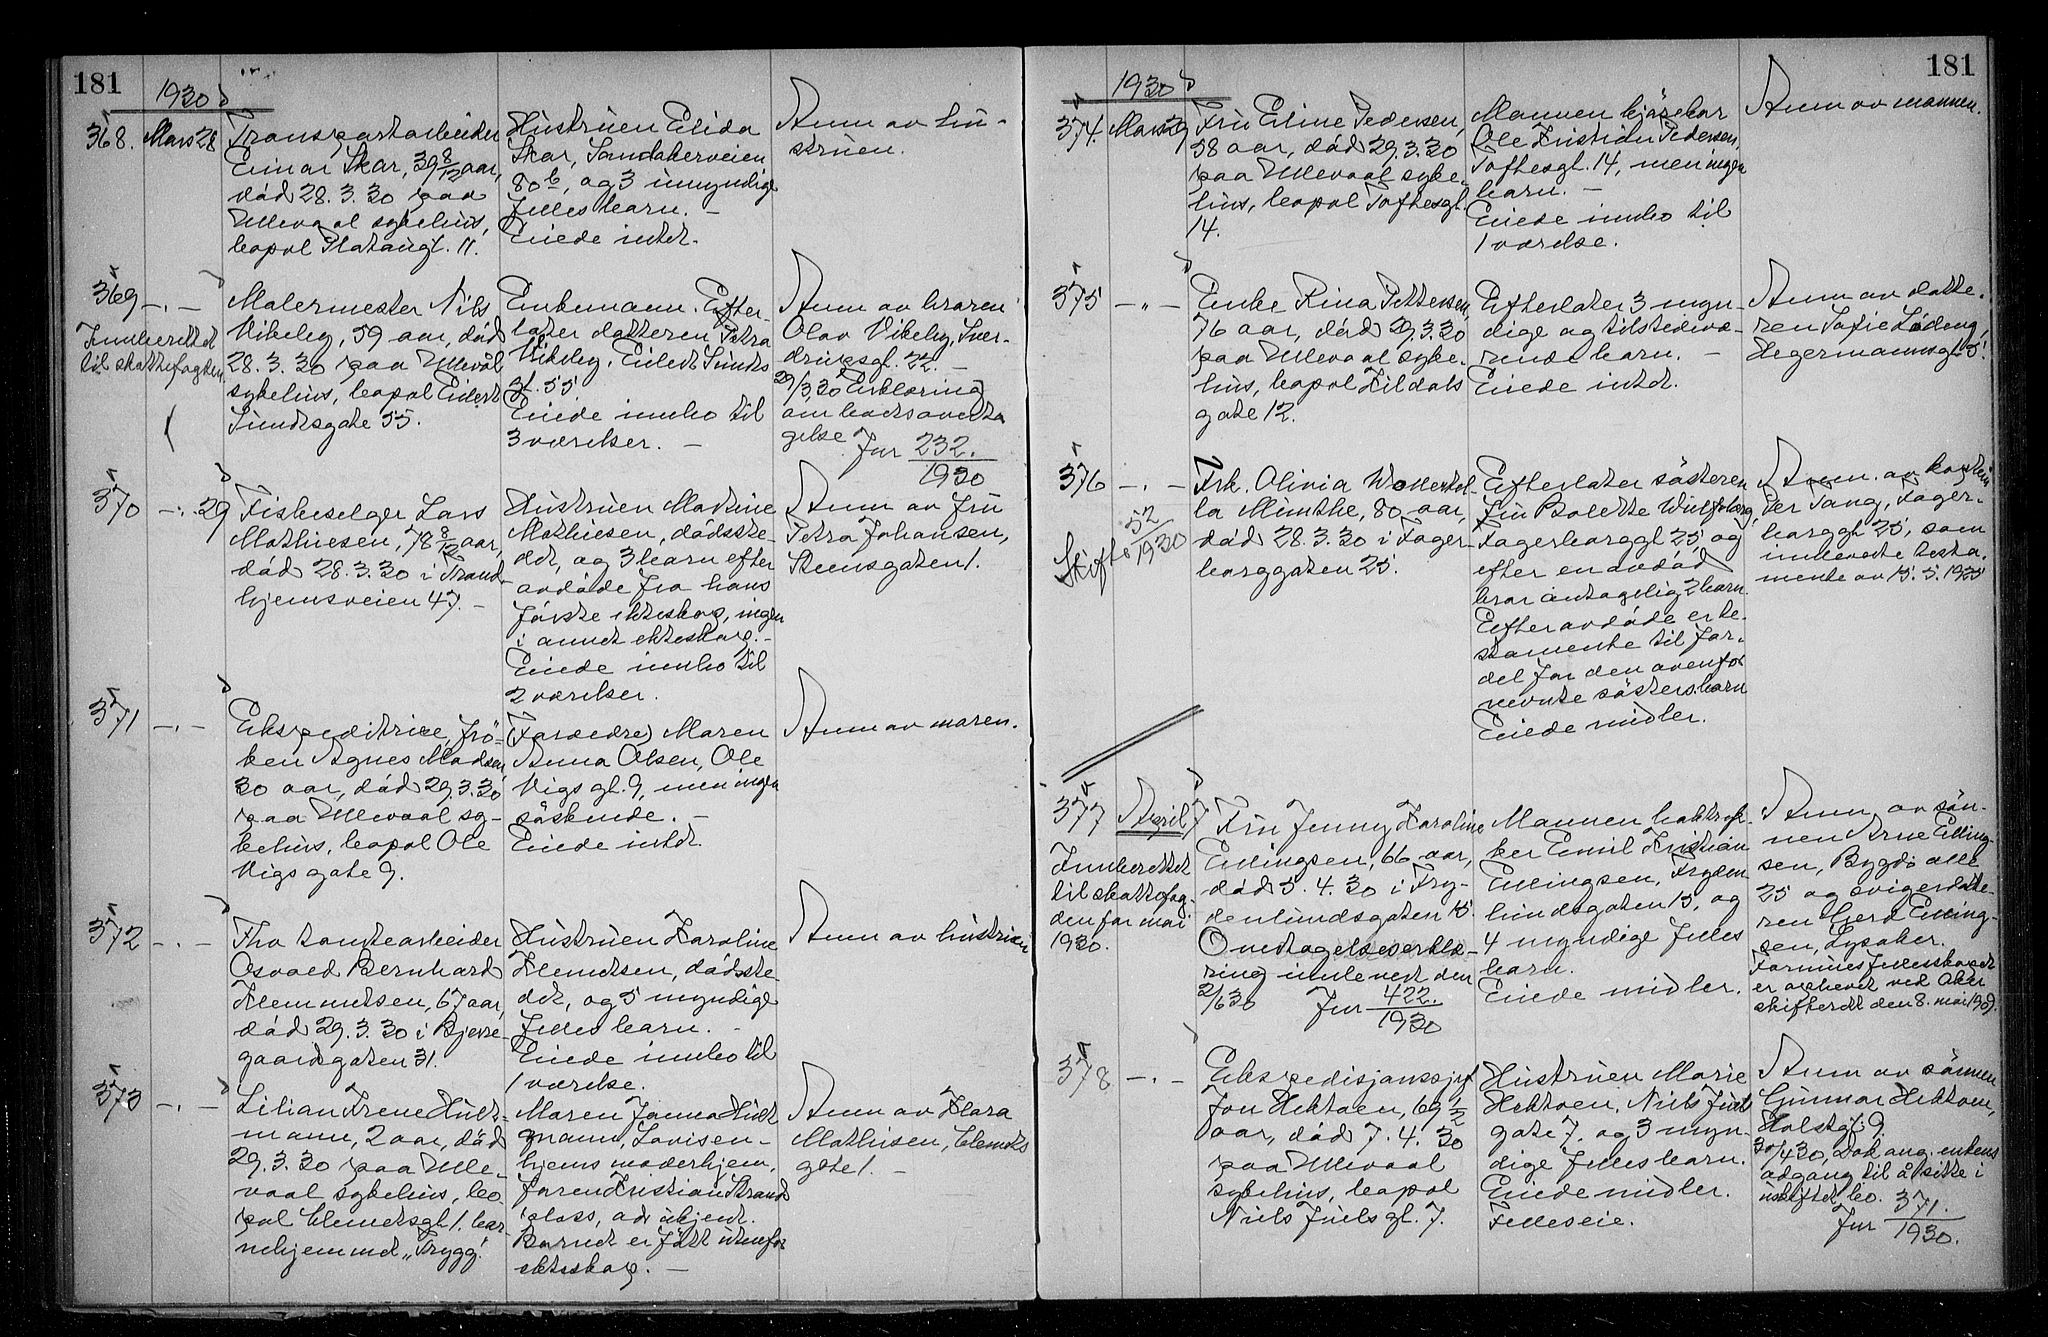 181
1930
368. Mars 28
Transportarbeider
Einar Skar, 39 8/12 aar,
död 28.3.30 paa
Ullevaal sykehus,
bopæl Platougt. 11.
Hustruen Elida
Skar, Sandakerveien
80b, og 3 umyndige
felles barn. —
Eiede intet.
Anm av hu-
struen.
369 —„—
Innberettet
til skattefogden
Malermester Nils
Vikeby, 59 aar, död
28.3.30 paa Ullevål
sykehus, bopæl Eilert
Sundtsgate 55.
Enkemann. Efter-
later datteren Petra
Vikeby, Eilert Sundts
gt. 55
Eiede innbo til
3 værelser. —
Anm av broren
Olav Vikeby, Sver-
drupsgt. 32. —
29/3.30 Erklæring
om boets overta
gelse
Jnr 232./1930
370 —„— 29
Fiskeselger Lars
Mathiesen, 78 8/12 aar,
död 28.3.30 i Trond-
hjemsveien 47. —
Hustruen Martine
Mathiesen, dödsste-
det, og 3 barn efter
avdöde fra hans
förste ekteskap, ingen
i annet ekteskap. —
Eiede innbo til
2 værelser.
Anm av fru
Petra Johansen,
Steensgaten 1.
371 —„—
Ekspeditrice, frö-
ken Agnes Madsen
30 aar, död 29.3.30
paa Ullevaal sy-
kehus, bopæl Ole
Vigs gate 9.
(Foreldre) Moren
Anna Olsen, Ole
Vigs gt. 9, men ingen
söskende. —
Eiede intet
Anm av moren.
372 —„—
Osvald Bernhard
Klemmetsen, 67 aar,
död 29.3.30 i Bjerre-
gaardgaten 31.
Hustruen Karoline
Klemetsen, dödsste-
det, og 5 myndige
felles barn. —
Eiede innbo til
1 værelse.
Anm av hustruen
373 —„—
Lilian Irene Hult-
mann, 2 aar, död
29.3.30 paa Ulle-
vaal sykehus, bo
pæl Clemetsgt 1. bar
nehjemmet „Trygg".
Moren Janna Hult
mann, Lovisen-
hjems moderhjem,
faren Kristian Strand
plass, adr ukjent.
Barnet er född utenfor
ekteskap. —
Anm av Klara
Mathisen, Clemets
gate 1. —
181
1930
374. Mars 29
Fru Eline Pedersen,
58 aar, död 29.3.30
paa Ullevaal syke-
hus, bopæl Toftesgt.
14.
Mannen kjörekar
Ole Kristian Pedersen,
Toftesgt. 14, men ingen
barn. —
Eiede innbo til
1 værelse.
Anm av mannen.
375 —„—
Enke Rina Pettersen
76 aar, död 29.3.30
paa Ullevaal syke-
hus, bopæl Kildals
gate 12.
Efterlater 3 myn-
dige og tilstedevæ-
rende barn. —
Eiede intet.
Anm av datte-
ren Sofie Lödeng,
Hegermannsgt. 5.
376 —„—
Skifte 52/1930
Frk. Olivia Wollertel-
la Munthe, 80 aar,
död 28.3.30 i Fager-
borggaten 25.
Efterlater sösteren
Fru Bolette Wulfsberg,
Fagerborggt 25, og
efter en avdöd
bror antagelig 2 barn.
Efter avdöde er te-
stamente til for-
del for den ovenfor
nevnte sösters barn
Eiede midler.
Anm. av kaptein
Per Tang, Fager-
borggt. 25, som
innleverte testa-
mente av 15.5.1925
377 April 7
Innberettet
til skattefog-
den for mai
1930.
Fru Jenny Karoline
Ellingsen, 66 aar,
död 5.4.30 i Fry-
denlundsgaten 15.
Overtagelseserklæ-
ring innlevert den
2/6 30 Jnr 422./1930
Mannen baktrykker Emil Kristian
Ellingsen, Fryden
lundsgaten 15, og
4 myndige felles
barn.
Eiede midler.
Anm av sön-
nen Arne Elling-
sen, Bygdö alle
25 og svigerdatte-
ren Gerd Elling-
sen, Lysaker.
Formuesfellesskapet
er ophevet ved Aker
skifterett den 8. mai 1909.
378 —„—
Ekspedisjonssjef
Jon Hektoen, 69 1/2
aar, död 7.4.30
paa Ullevaal
sykehus, bopæl
Niels Juels gt. 7.
Hustruen Marie
Hektoen, Niels Juels
gate 7. og 3 myn-
dige felles barn.
Eiede midler.
Felleseie.
Anm av sönnen
Gunnar Hektoen,
Holstgt. 9,
30/4 30, Dok ang. enkens
adgang til å sitte i
uskiftet bo.
Jnr 371./1930.